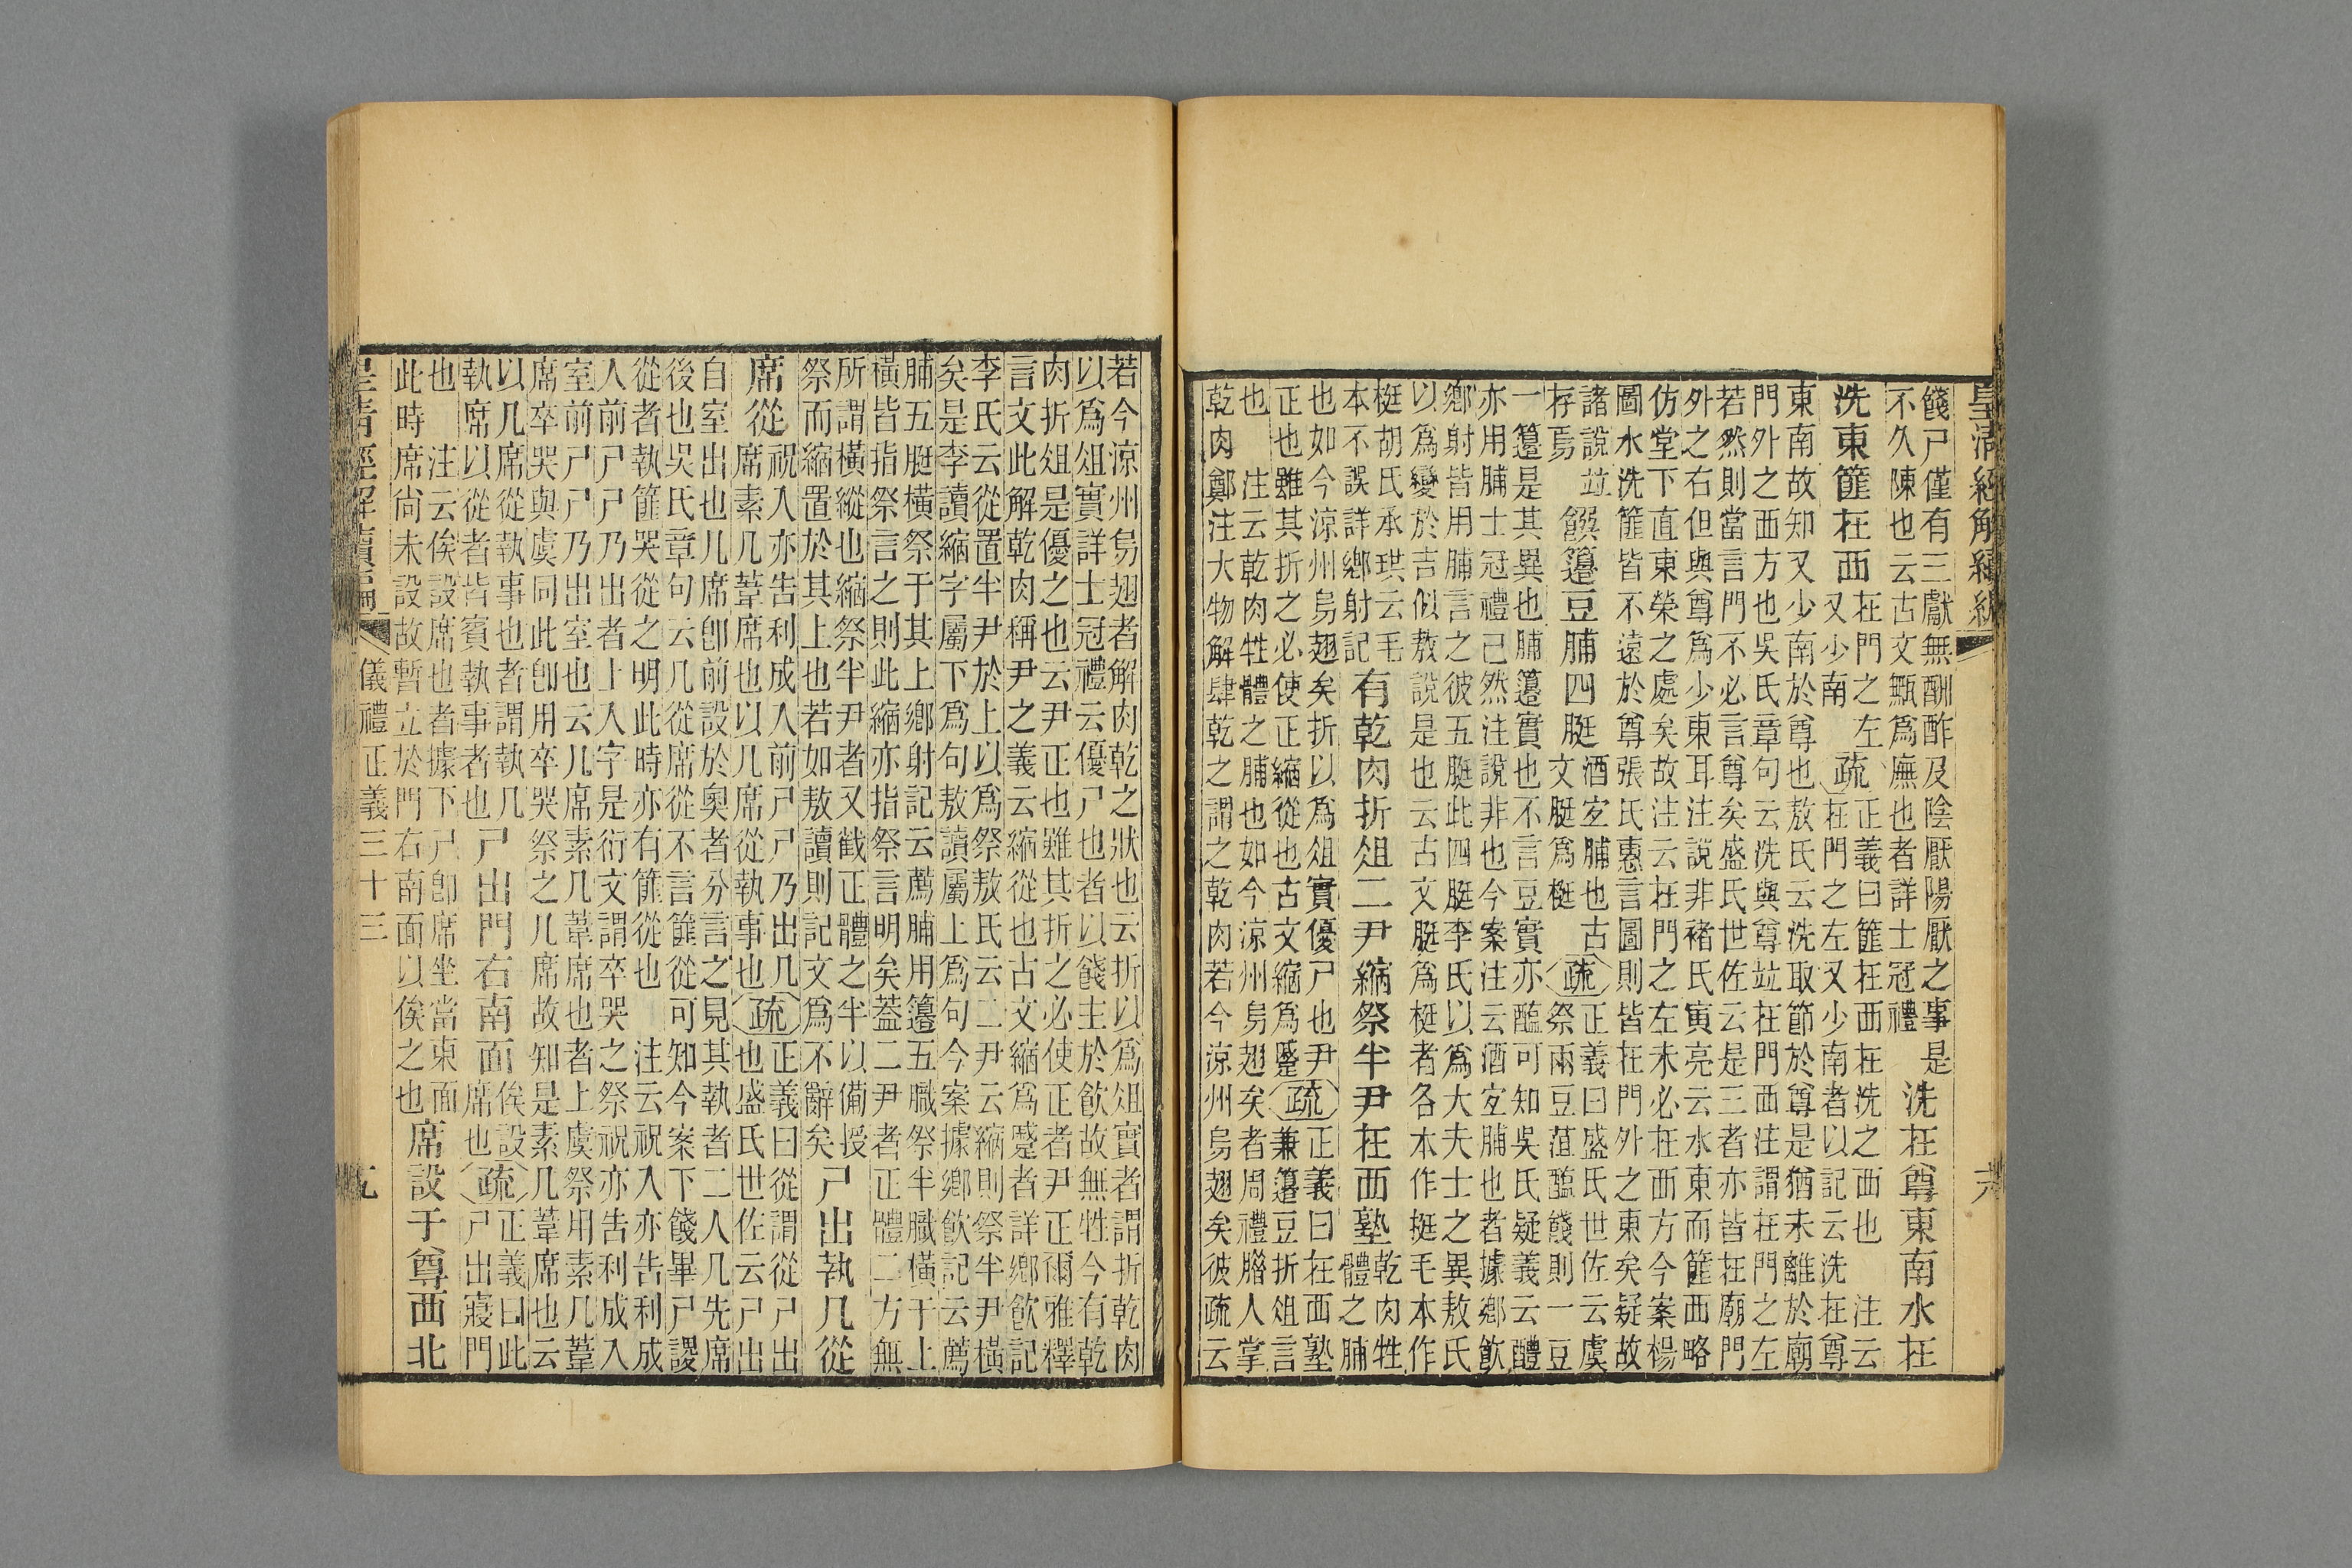 皇清經解續編
餞尸僅有三獻無酬酢及陰厭陽厭之事是
不久陳也云古文甒爲廡也者詳士冠禮
洗在尊東南水在
洗東篚在西
在門之左
又少南
疏
正義曰篚在西在洗之西也 注云
在門之左又少南者以記云洗在尊
東南故知又少南於尊也敖氏云洗取節於尊是猶未離於廟
門外之西方也吳氏章句云洗與尊竝在門西注謂在門之左
若然則當言門不必言尊矣盛氏世佐云是三者亦皆在廟門
外之右但與尊爲少東耳注說非褚氏寅亮云水東而篚西略
仿堂下直東榮之處矣故注云在門之左未必在西方今案楊
圖水洗篚皆不遠於尊張氏惠言圖則皆在門外之東矣疑故
諸說竝
存焉
饌籩豆脯四脡
酒宜脯也古
文脡爲梃
疏
正義曰盛氏世佐云虞
祭兩豆菹醢餞則一豆
一籩是其異也脯籩實也不言豆實亦醢可知吳氏疑義云醴
亦用脯士冠禮已然注說非也今案注云酒宜脯也者據鄉飲
鄉射皆用脯言之彼五脡此四脡李氏以爲大夫士之異敖氏
以爲變於吉似敖說是也云古文脡爲梃者各本作挺毛本作
梃胡氏承珙云毛
本不誤詳鄉射記
有乾肉折俎二尹縮祭半尹在西塾
乾肉牲
體之脯
也如今涼州烏翅矣折以爲俎實優尸也尹
正也雖其折之必使正縮從也古文縮爲蹙
疏
正義曰在西塾
兼籩豆折俎言
也 注云乾肉牲體之脯也如今涼州烏翅矣者周禮腊人掌
乾肉鄭注大物解肆乾之謂之乾肉若今涼州烏翅矣彼疏云
若今涼州烏翅者解肉乾之狀也云折以爲俎實者謂折乾肉
以爲俎實詳士冠禮云優尸也者以餞主於飲故無牲今有乾
肉折俎是優之也云尹正也雖其折之必使正者尹正爾雅釋
言文此解乾肉稱尹之義云縮從也古文縮爲蹙者詳鄉飲記
李氏云從置半尹於上以爲祭敖氏云二尹云縮則祭半尹橫
矣是李讀縮字屬下爲句敖讀屬上爲句今案據鄉飲記云薦
脯五脡橫祭于其上鄉射記云薦脯用籩五膱祭半膱橫于上
橫皆指祭言之則此縮亦指祭言明矣蓋二尹者正體二方無
所謂橫縱也縮祭半尹者又截正體之半以備授
祭而縮置於其上也若如敖讀則記文爲不辭矣
尸出執几從
席從
祝入亦告利成入前尸尸乃出几
席素几葦席也以几席從執事也
疏
正義曰從謂從尸出
也盛氏世佐云尸出
自室出也几席卽前設於奧者分言之見其執者二人几先席
後也吳氏章句云几從席從不言篚從可知今案下餞畢尸謖
從者執篚哭從之明此時亦有篚從也 注云祝入亦告利成
入前尸尸乃出者上入字是衍文謂卒哭之祭祝亦告利成入
室前尸尸乃出室也云几席素几葦席也者上虞祭用素几葦
席卒哭與虞同此卽用卒哭祭之几席故知是素几葦席也云
以几席從執事也者謂執几
執席以從者皆賓執事者也
尸出門右南面
俟設
席也
疏
正義曰此
尸出寢門
也 注云俟設席也者據下尸卽席坐當東面
此時席尚未設故暫立於門右南面以俟之也
席設于尊西北
皇清經解續編 儀禮正義三十三